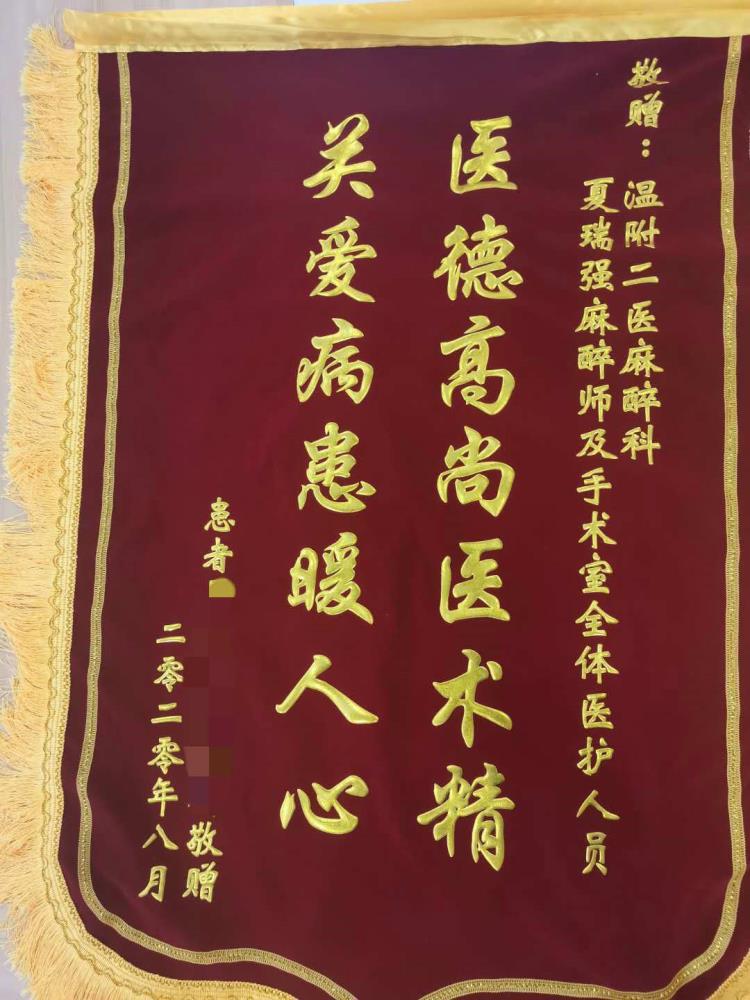 敬赠：温附二医麻醉科
夏瑞强麻醉师及手术室全体医护人员
医德高尚医术精
关爱病患暖人心
患者
敬赠
二零二零年八月